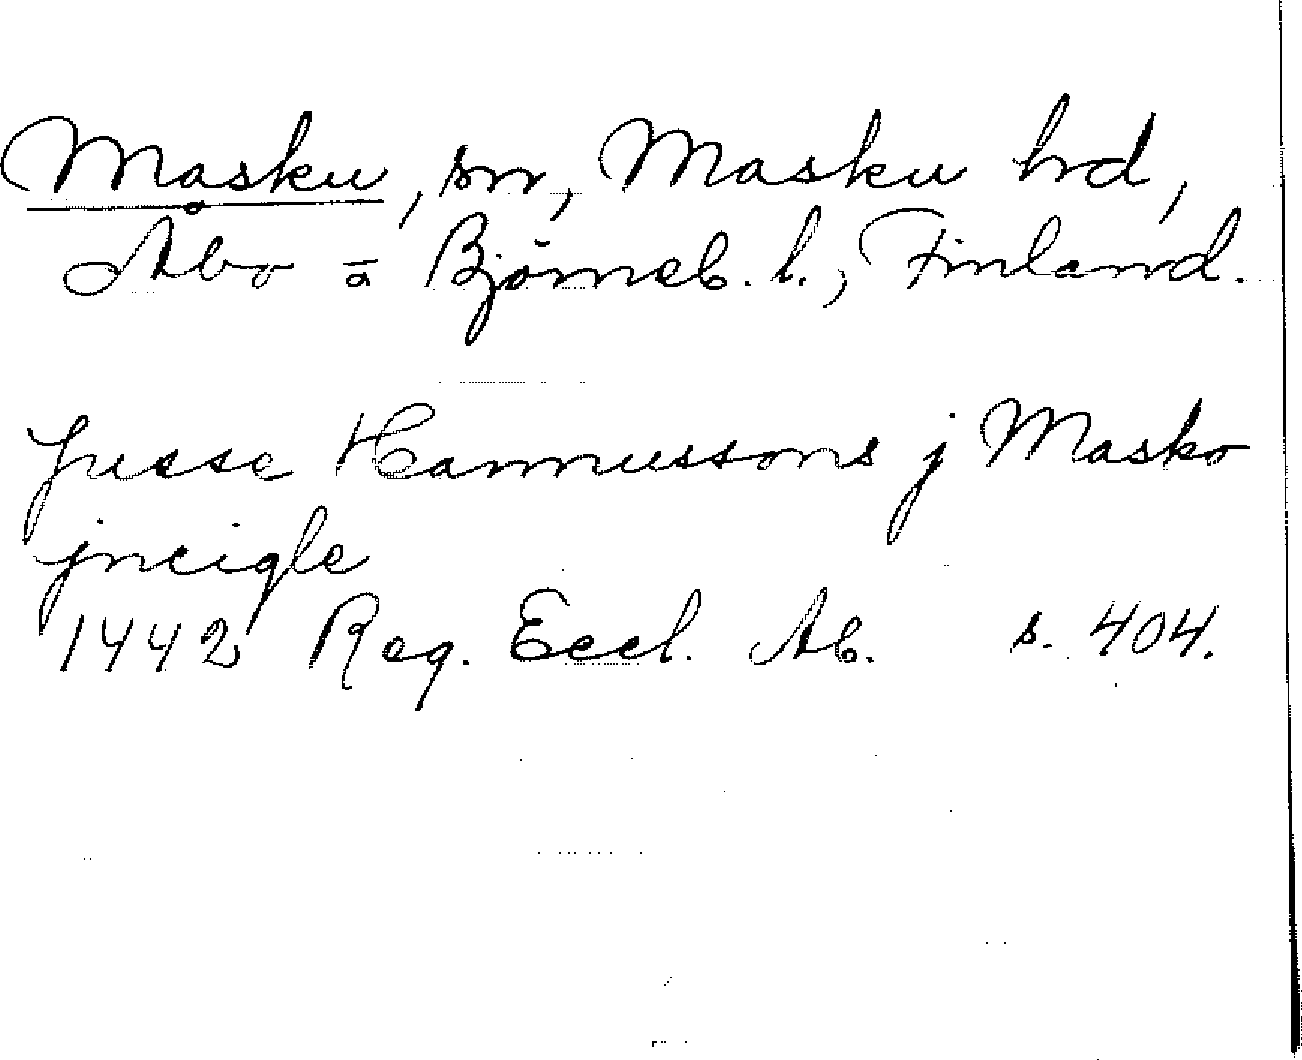 Masku, sn, Masku hrd,
Åbo o Björneb. l., Finland.
Jusse Hannussons j Masko
jncigle
1442 Reg. Eccl. Ab. s. 404.